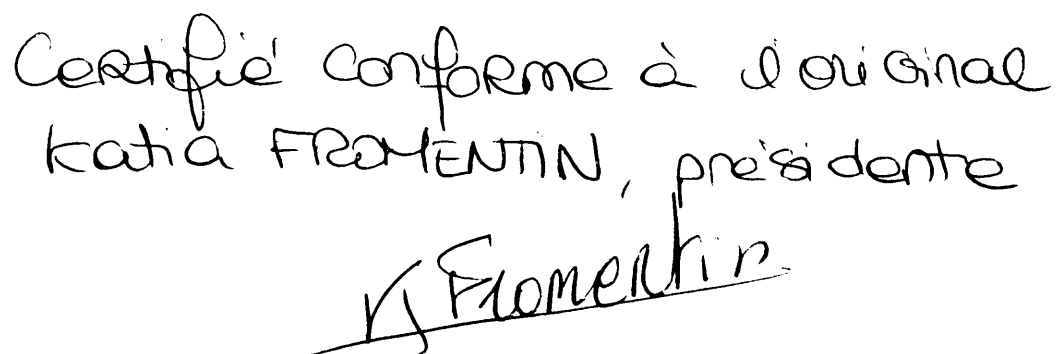 Certifié conforme à l'original
Katia FROMENTIN, présidente
K Fromentin